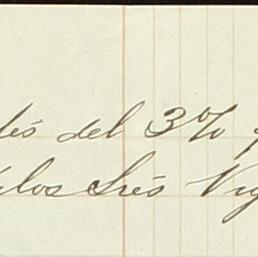 és del 3%
los Srés Vig